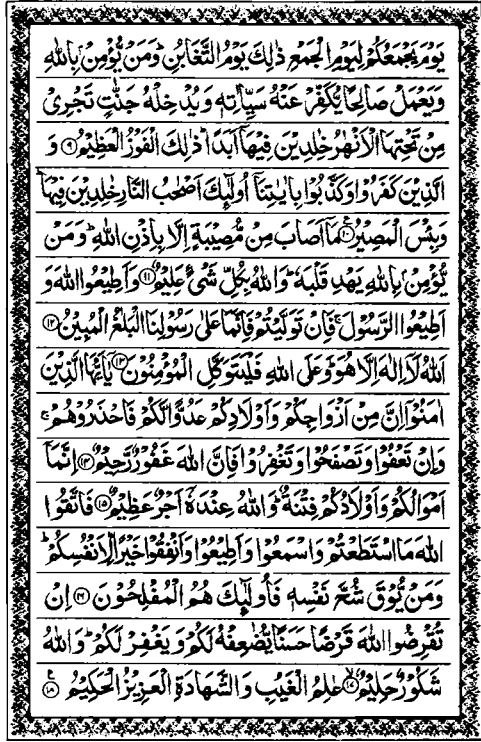 يَوْمَ يَجْمَعُكُمْ لِيَوْمِ الْجَمْعِ ذٰلِكَ يَوْمُ التَّغَابُنِ ؕ وَمَنْ يُّؤْمِنْۢ بِاللّٰهِ
وَيَعْمَلْ صَالِحًا يُّكَفِّرْ عَنْهُ سَيِّاٰتِهٖ وَيُدْخِلْهُ جَنّٰتٍ تَجْرِيْ
مِنْ تَحْتِهَا الْاَنْهٰرُ خٰلِدِيْنَ فِيْهَاۤ اَبَدًا ؕ ذٰلِكَ الْفَوْزُ الْعَظِيْمُ ۹ وَ
الَّذِيْنَ كَفَرُوْا وَكَذَّبُوْا بِاٰيٰتِنَاۤ اُولٰٓئِكَ اَصْحٰبُ النَّارِ خٰلِدِيْنَ فِيْهَا ؕ
وَبِئْسَ الْمَصِيْرُ ۱۰ مَاۤ اَصَابَ مِنْ مُّصِيْبَةٍ اِلَّا بِاِذْنِ اللّٰهِ ؕ وَمَنْ
يُّؤْمِنْۢ بِاللّٰهِ يَهْدِ قَلْبَهٗ ؕ وَاللّٰهُ بِكُلِّ شَيْءٍ عَلِيْمٌ ۱۱ وَاَطِيْعُوا اللّٰهَ وَ
اَطِيْعُوا الرَّسُوْلَ ۚ فَاِنْ تَوَلَّيْتُمْ فَاِنَّمَا عَلٰى رَسُوْلِنَا الْبَلٰغُ الْمُبِيْنُ ۱۲
اَللّٰهُ لَاۤ اِلٰهَ اِلَّا هُوَ ؕ وَعَلَى اللّٰهِ فَلْيَتَوَكَّلِ الْمُؤْمِنُوْنَ ۱۳ يٰۤاَيُّهَا الَّذِيْنَ
اٰمَنُوْۤا اِنَّ مِنْ اَزْوَاجِكُمْ وَاَوْلَادِكُمْ عَدُوًّا لَّكُمْ فَاحْذَرُوْهُمْ ۚ
وَاِنْ تَعْفُوْا وَتَصْفَحُوْا وَتَغْفِرُوْا فَاِنَّ اللّٰهَ غَفُوْرٌ رَّحِيْمٌ ۱۴ اِنَّمَاۤ
اَمْوَالُكُمْ وَاَوْلَادُكُمْ فِتْنَةٌ ؕ وَاللّٰهُ عِنْدَهٗۤ اَجْرٌ عَظِيْمٌ ۱۵ فَاتَّقُوا
اللّٰهَ مَا اسْتَطَعْتُمْ وَاسْمَعُوْا وَاَطِيْعُوْا وَاَنْفِقُوْا خَيْرًا لِّاَنْفُسِكُمْ ؕ
وَمَنْ يُّوْقَ شُحَّ نَفْسِهٖ فَاُولٰٓئِكَ هُمُ الْمُفْلِحُوْنَ ۱۶ اِنْ
تُقْرِضُوا اللّٰهَ قَرْضًا حَسَنًا يُّضٰعِفْهُ لَكُمْ وَيَغْفِرْ لَكُمْ ؕ وَاللّٰهُ
شَكُوْرٌ حَلِيْمٌ ۱۷ عٰلِمُ الْغَيْبِ وَالشَّهَادَةِ الْعَزِيْزُ الْحَكِيْمُ ۱۸